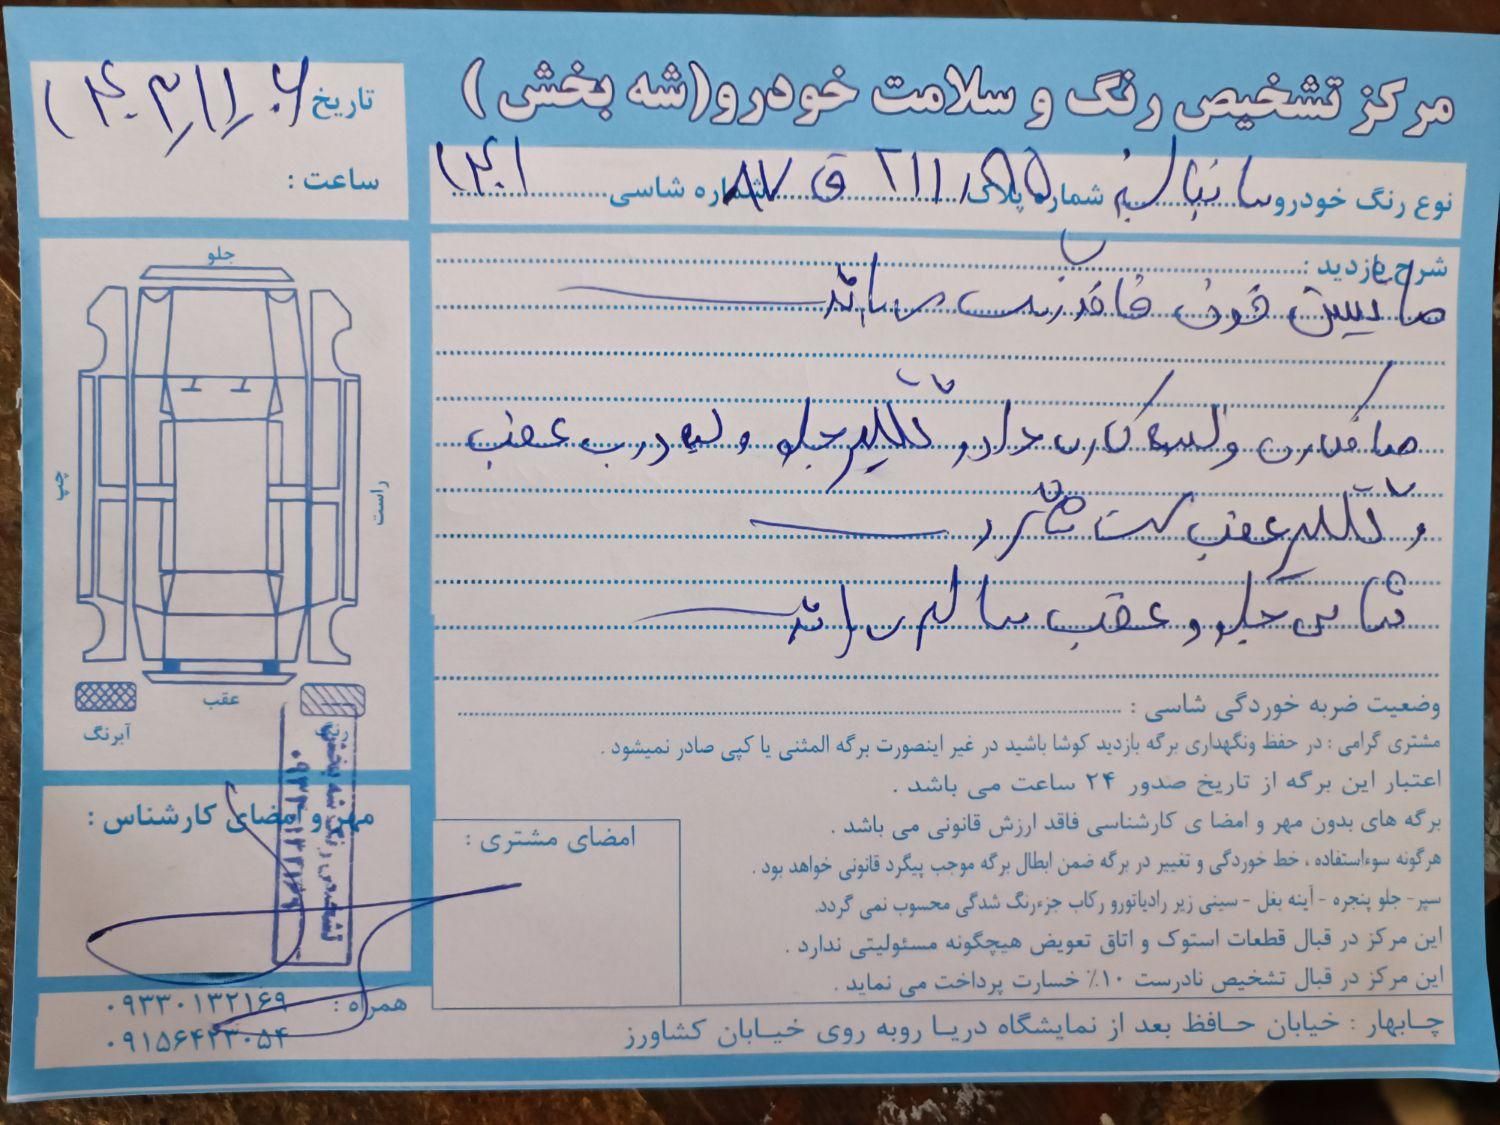 مرکز تشخیص رنگ و سلامت خودرو(شه بخش )
تاریخ ۱۴۰۳/۱۱/۰۶
ساعت :
نوع رنگ خودرو ساینا سفید شماره پلاک ۸۵ / ۲۱۱ ق ۸۷ شماره شاسی ۱۴۰۱
شرح بازدید :
ماشین فوق فاقد رنگ میباشد
صافکاری و لیسه کاری دارد گلگیر جلو و لبه درب عقب
و گلگیر عقب سمت شاگرد
شاسی جلو و عقب سالم میباشد
جلو
چپ
راست
عقب
آبرنگ
رنگ
تشخیص رنگ شه بخش
۰۹۳۳۰۱۳۲۱۶۹
وضعیت ضربه خوردگی شاسی :
مشتری گرامی : در حفظ ونگهداری برگه بازدید کوشا باشید در غیر اینصورت برگه المثنی یا کپی صادر نمیشود .
اعتبار این برگه از تاریخ صدور ۲۴ ساعت می باشد .
برگه های بدون مهر و امضا ی کارشناسی فاقد ارزش قانونی می باشد .
هرگونه سوءاستفاده ، خط خوردگی و تغییر در برگه ضمن ابطال برگه موجب پیگرد قانونی خواهد بود .
سپر- جلو پنجره - آینه بغل - سینی زیر رادیاتورو رکاب جزءرنگ شدگی محسوب نمی گردد.
این مرکز در قبال قطعات استوک و اتاق تعویض هیچگونه مسئولیتی ندارد .
این مرکز در قبال تشخیص نادرست ۱۰٪ خسارت پرداخت می نماید .
امضای مشتری :
مهر و امضای کارشناس :
همراه : ۰۹۳۳۰۱۳۲۱۶۹
۰۹۱۵۶۴۲۳۰۵۴
چـابهار : خیابان حـافظ بعد از نمایشگاه دریـا روبه روی خیـابان کشاورز